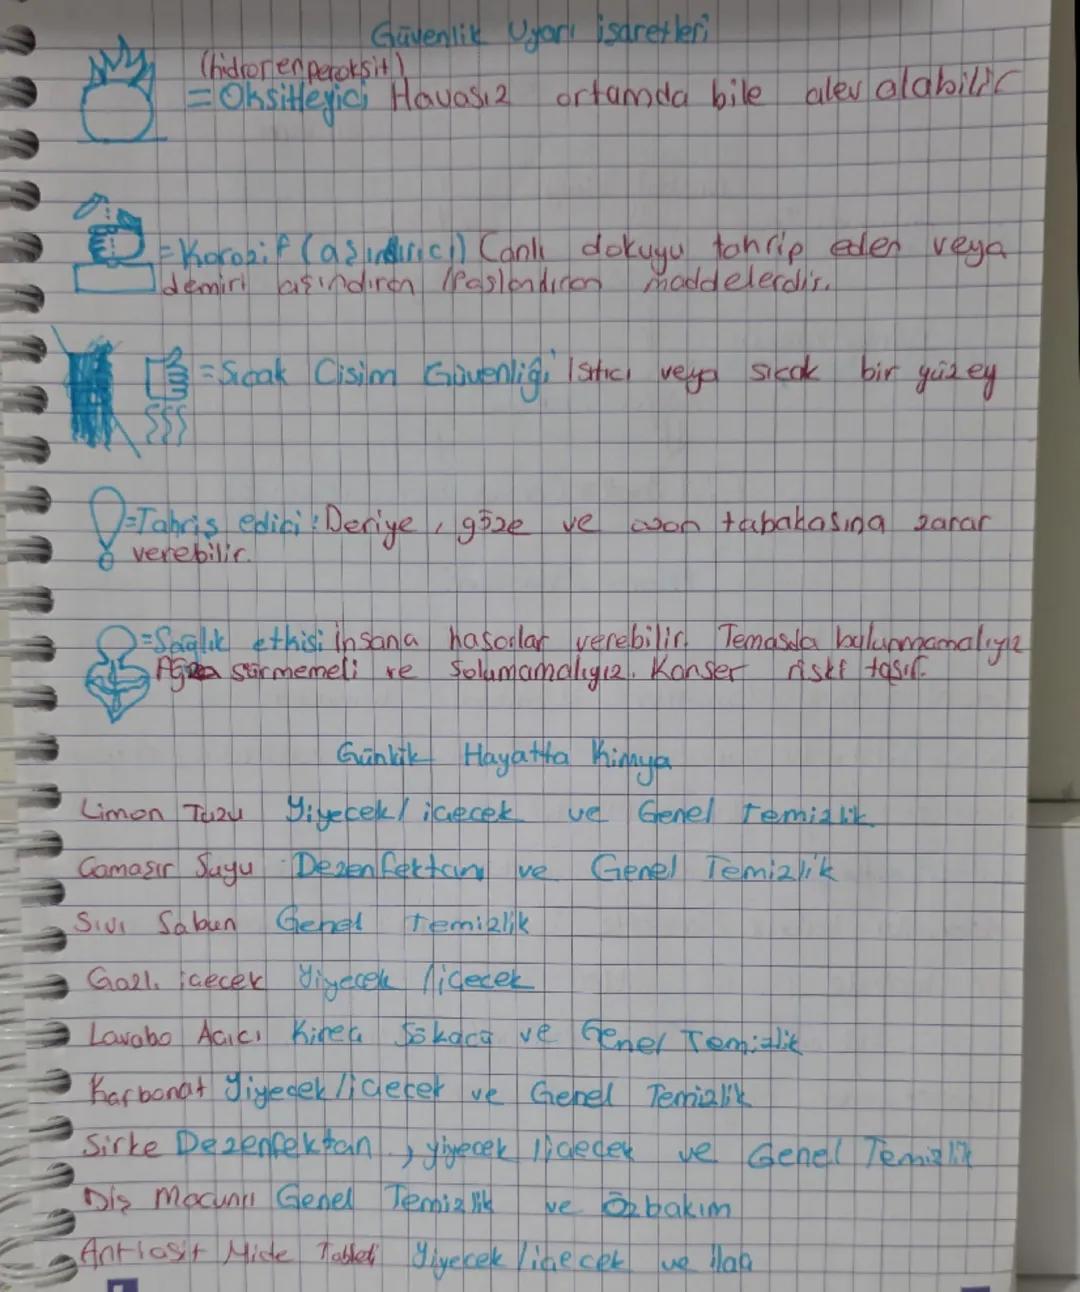 Güvenlik Uyarı işaretleri
(hidrorenperoksit)
= Oksitleyici Havasız ortamda bile alev alabilir
=Korozif (aşındırıcı) Canlı dokuyu tahrip eden veya
demiri aşındıran /Paslandıran maddelerdir.
=Sıcak Cisim Güvenliği Isıtıcı veya sıcak bir yüzey
=Tahriş edici: Deriye, göze ve ozon tabakasına zarar
verebilir.
=Sağlık etkisi insana hasarlar verebilir. Temasda bulunmamalıyız
sürmemeli ve Solumamalıyız. Kanser riski taşır.
Günlük Hayatta Kimya
Limon Tuzu Yiyecek/içecek ve Genel Temizlik
Çamaşır Suyu Dezenfektan ve Genel Temizlik
Sıvı Sabun Genel Temizlik
Gazlı içecek Yiyecek/içecek
Lavabo Açıcı Kireç Sökücü ve Genel Temizlik
Karbonat Yiyecek/içecek ve Genel Temizlik
Sirke Dezenfektan, yiyecek/içecek ve Genel Temizlik
Diş Macunu Genel Temizlik ve Özbakım
Antiasit Mide Tableti Yiyecek/içecek ve ilaç